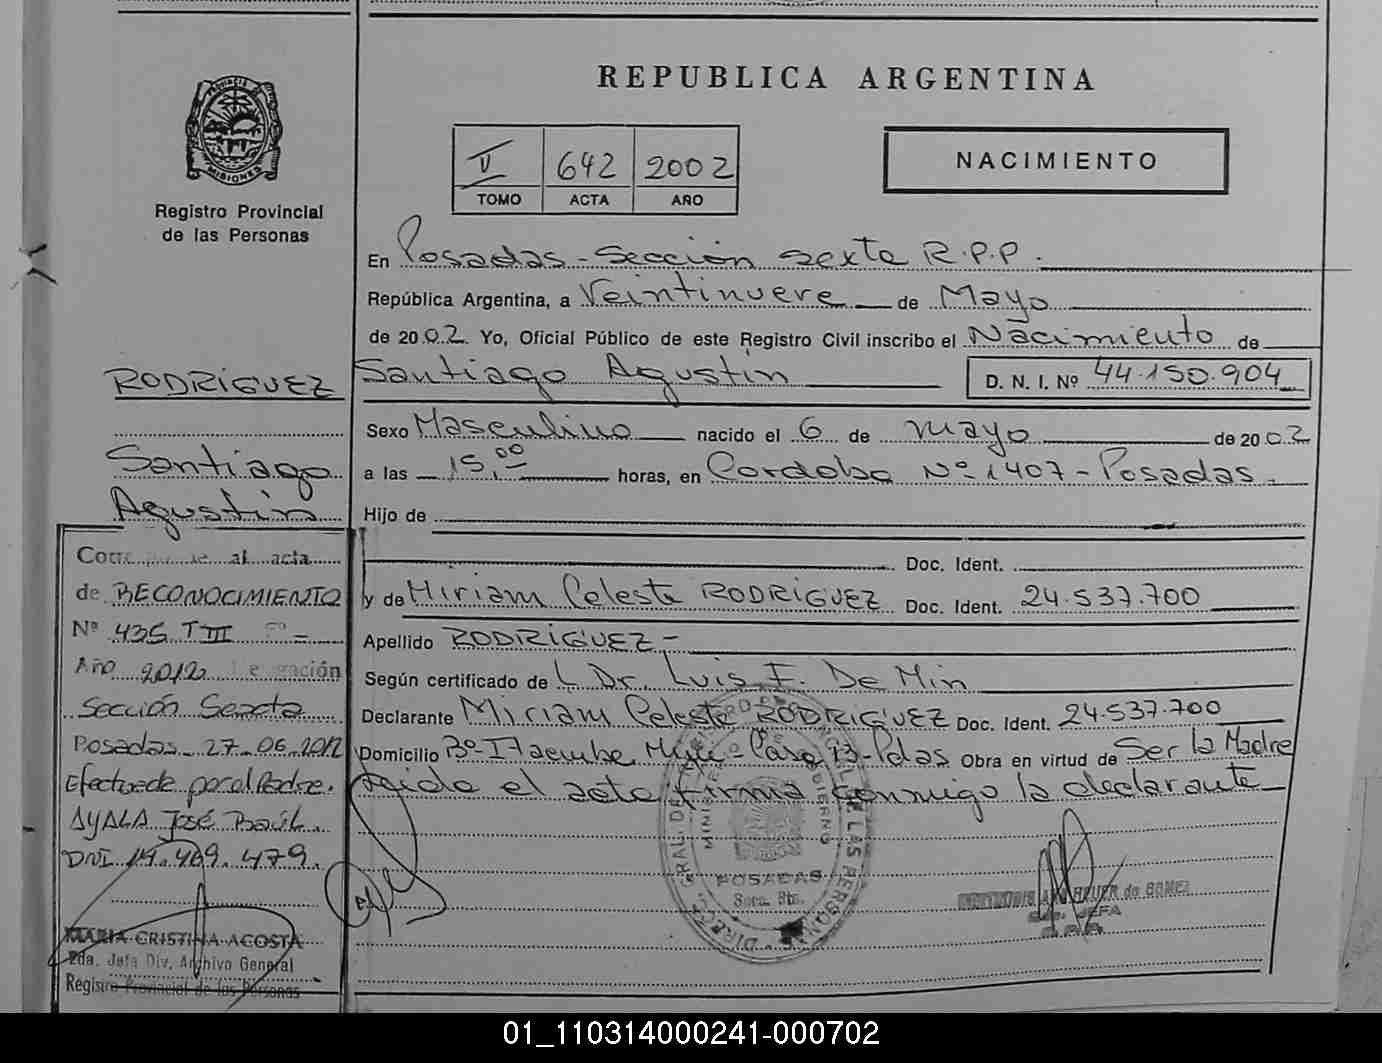 REPUBLICA ARGENTINA
PROVINCIA DE
MISIONES
Registro Provincial
de las Personas
V 642 2002
TOMO ACTA AÑO
NACIMIENTO
En Posadas - Sección sexta R.P.P.
República Argentina, a Veintinueve de Mayo
de 2002. Yo, Oficial Público de este Registro Civil inscribo el Nacimiento de
Santiago Agustin D. N. I. Nº 44.150.904
Sexo Masculino nacido el 6 de mayo de 2002
a las 15,00 horas, en Cordoba Nº 1407 - Posadas.
Hijo de
Doc. Ident.
y de Miriam Celeste RODRIGUEZ Doc. Ident. 24.537.700
Apellido RODRIGUEZ -
Según certificado de Dr. Luis F. De Min
Declarante Miriam Celeste RODRIGUEZ Doc. Ident. 24.537.700
Domicilio Bº Itaembe Mini - Casa 93 - Pdas Obra en virtud de Ser la Madre
leido el acta firma conmigo la declarante
RODRIGUEZ
Santiago
Agustin
al acta
de RECONOCIMIENTO
Nº 435 T III Fº =
Año 2012
Sección Sexta
Posadas 27 06 2012
Efectuada por el Padre.
AYALA José Raúl.
DNI 14.489.479.
MARIA CRISTINA ACOSTA
2da. Jefa Div. Archivo General
Registro Provincial de las Personas
POSADAS
DE LAS PERSONAS
JEFA
01_110314000241-000702